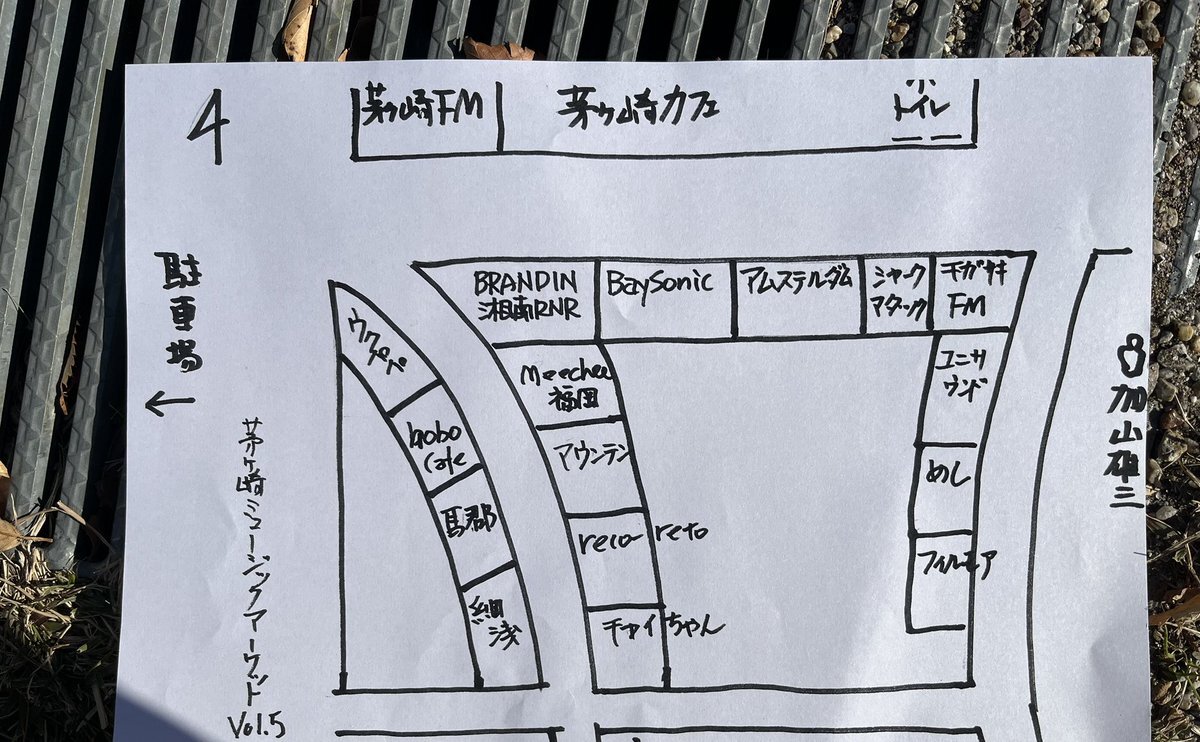 4
茅ヶ崎FM
茅ヶ崎カフェ
トイレ
駐車場
←
BRANDIN
湘南RNR
BaySonic
アムステルダム
シャーク
アタック
チガサキ
FM
ウクペペ
Meechee
福岡
ユニサ
ウンド
加山雄三
bobo
Cafe
アウンテン
めし
馬郡
reco-reto
フィルモア
細
浅
チャイちゃん
茅ヶ崎ミュージックアーケット
Vol.5